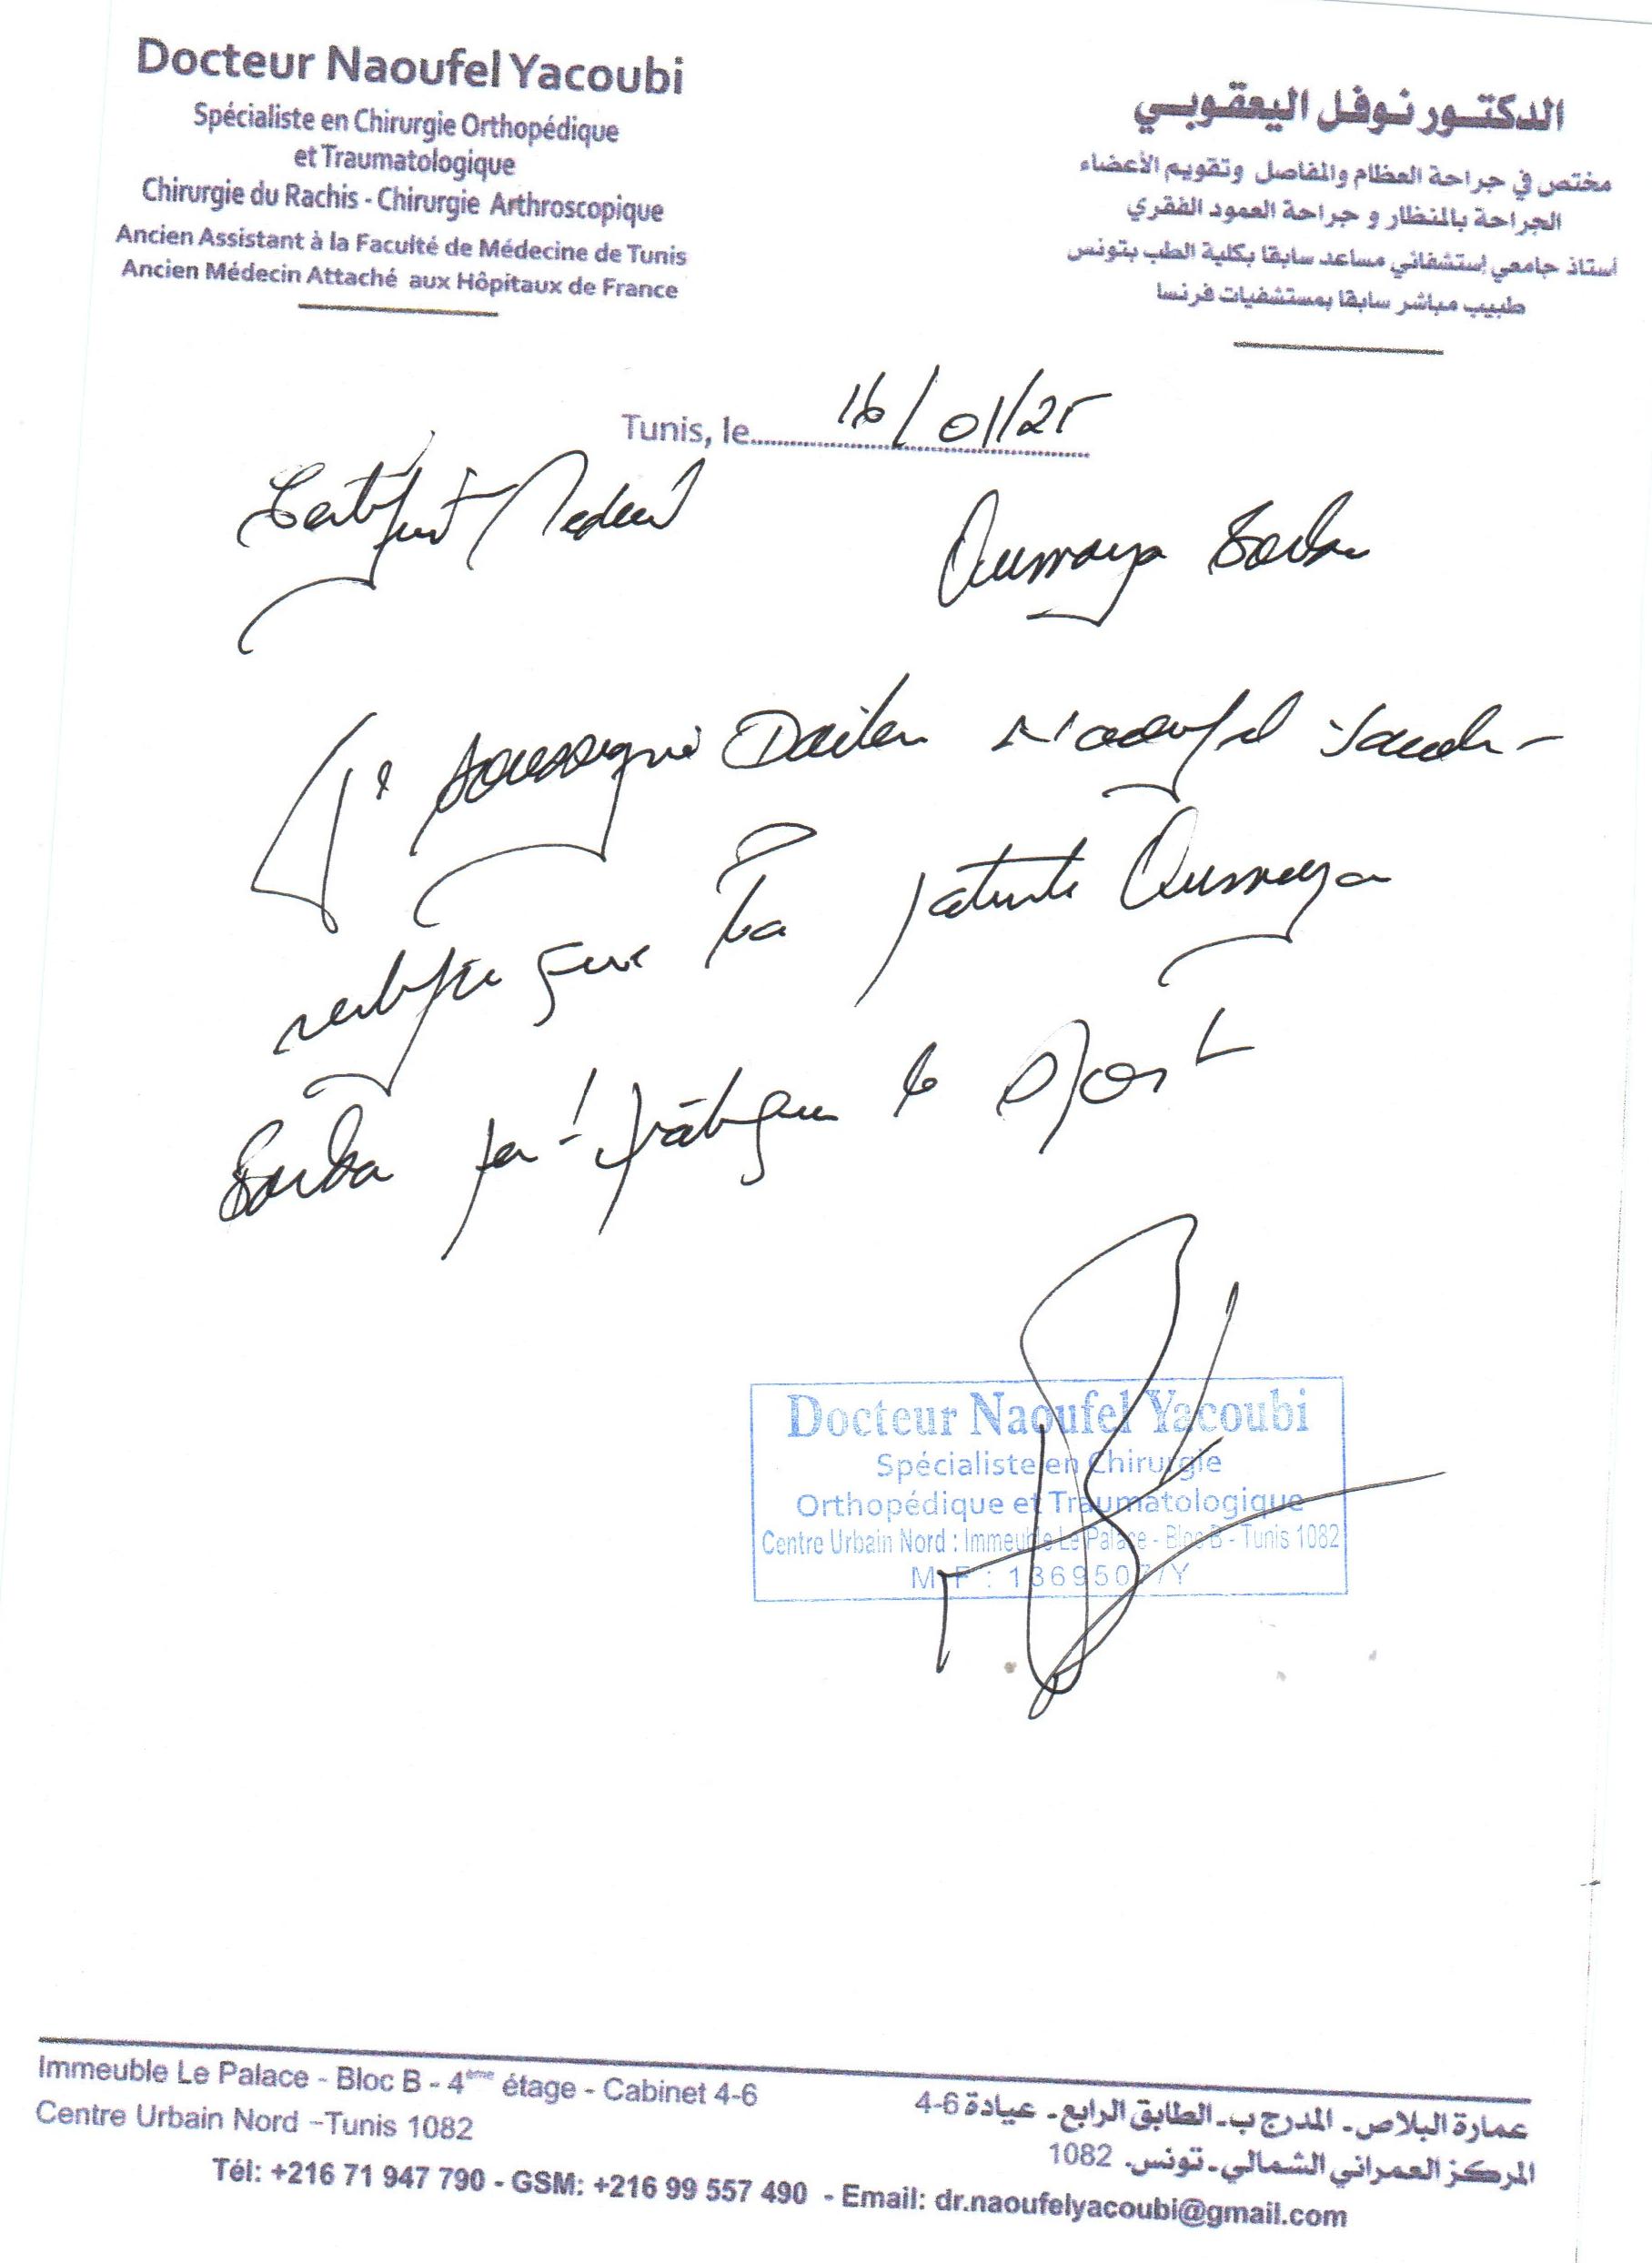 Docteur Naoufel Yacoubi
Spécialiste en Chirurgie Orthopédique
et Traumatologique
Chirurgie du Rachis - Chirurgie Arthroscopique
Ancien Assistant à la Faculté de Médecine de Tunis
Ancien Médecin Attaché aux Hôpitaux de France
الدكتور نوفل اليعقوبي
مختص في جراحة العظام والمفاصل وتقويم الأعضاء
الجراحة بالمنظار و جراحة العمود الفقري
أستاذ جامعي إستشفائي مساعد سابقا بكلية الطب بتونس
طبيب مباشر سابقا بمستشفيات فرنسا
Tunis, le 16/01/25
Certificat Médical
Oumaya
Je soussigné Docteur Naoufel Yacoubi
certifie que la patiente Oumaya
peut pratiquer le sport
Docteur Naoufel Yacoubi
Spécialiste en Chirurgie
Orthopédique et Traumatologique
Centre Urbain Nord : Immeuble Le Palace - Bloc B - Tunis 1082
M F : 1369507/Y
Immeuble Le Palace - Bloc B - 4ème étage - Cabinet 4-6
Centre Urbain Nord -Tunis 1082
عمارة البلاص - المدرج ب - الطابق الرابع - عيادة 6-4
المركز العمراني الشمالي - تونس. 1082
Tél: +216 71 947 790 - GSM: +216 99 557 490 - Email: dr.naoufelyacoubi@gmail.com